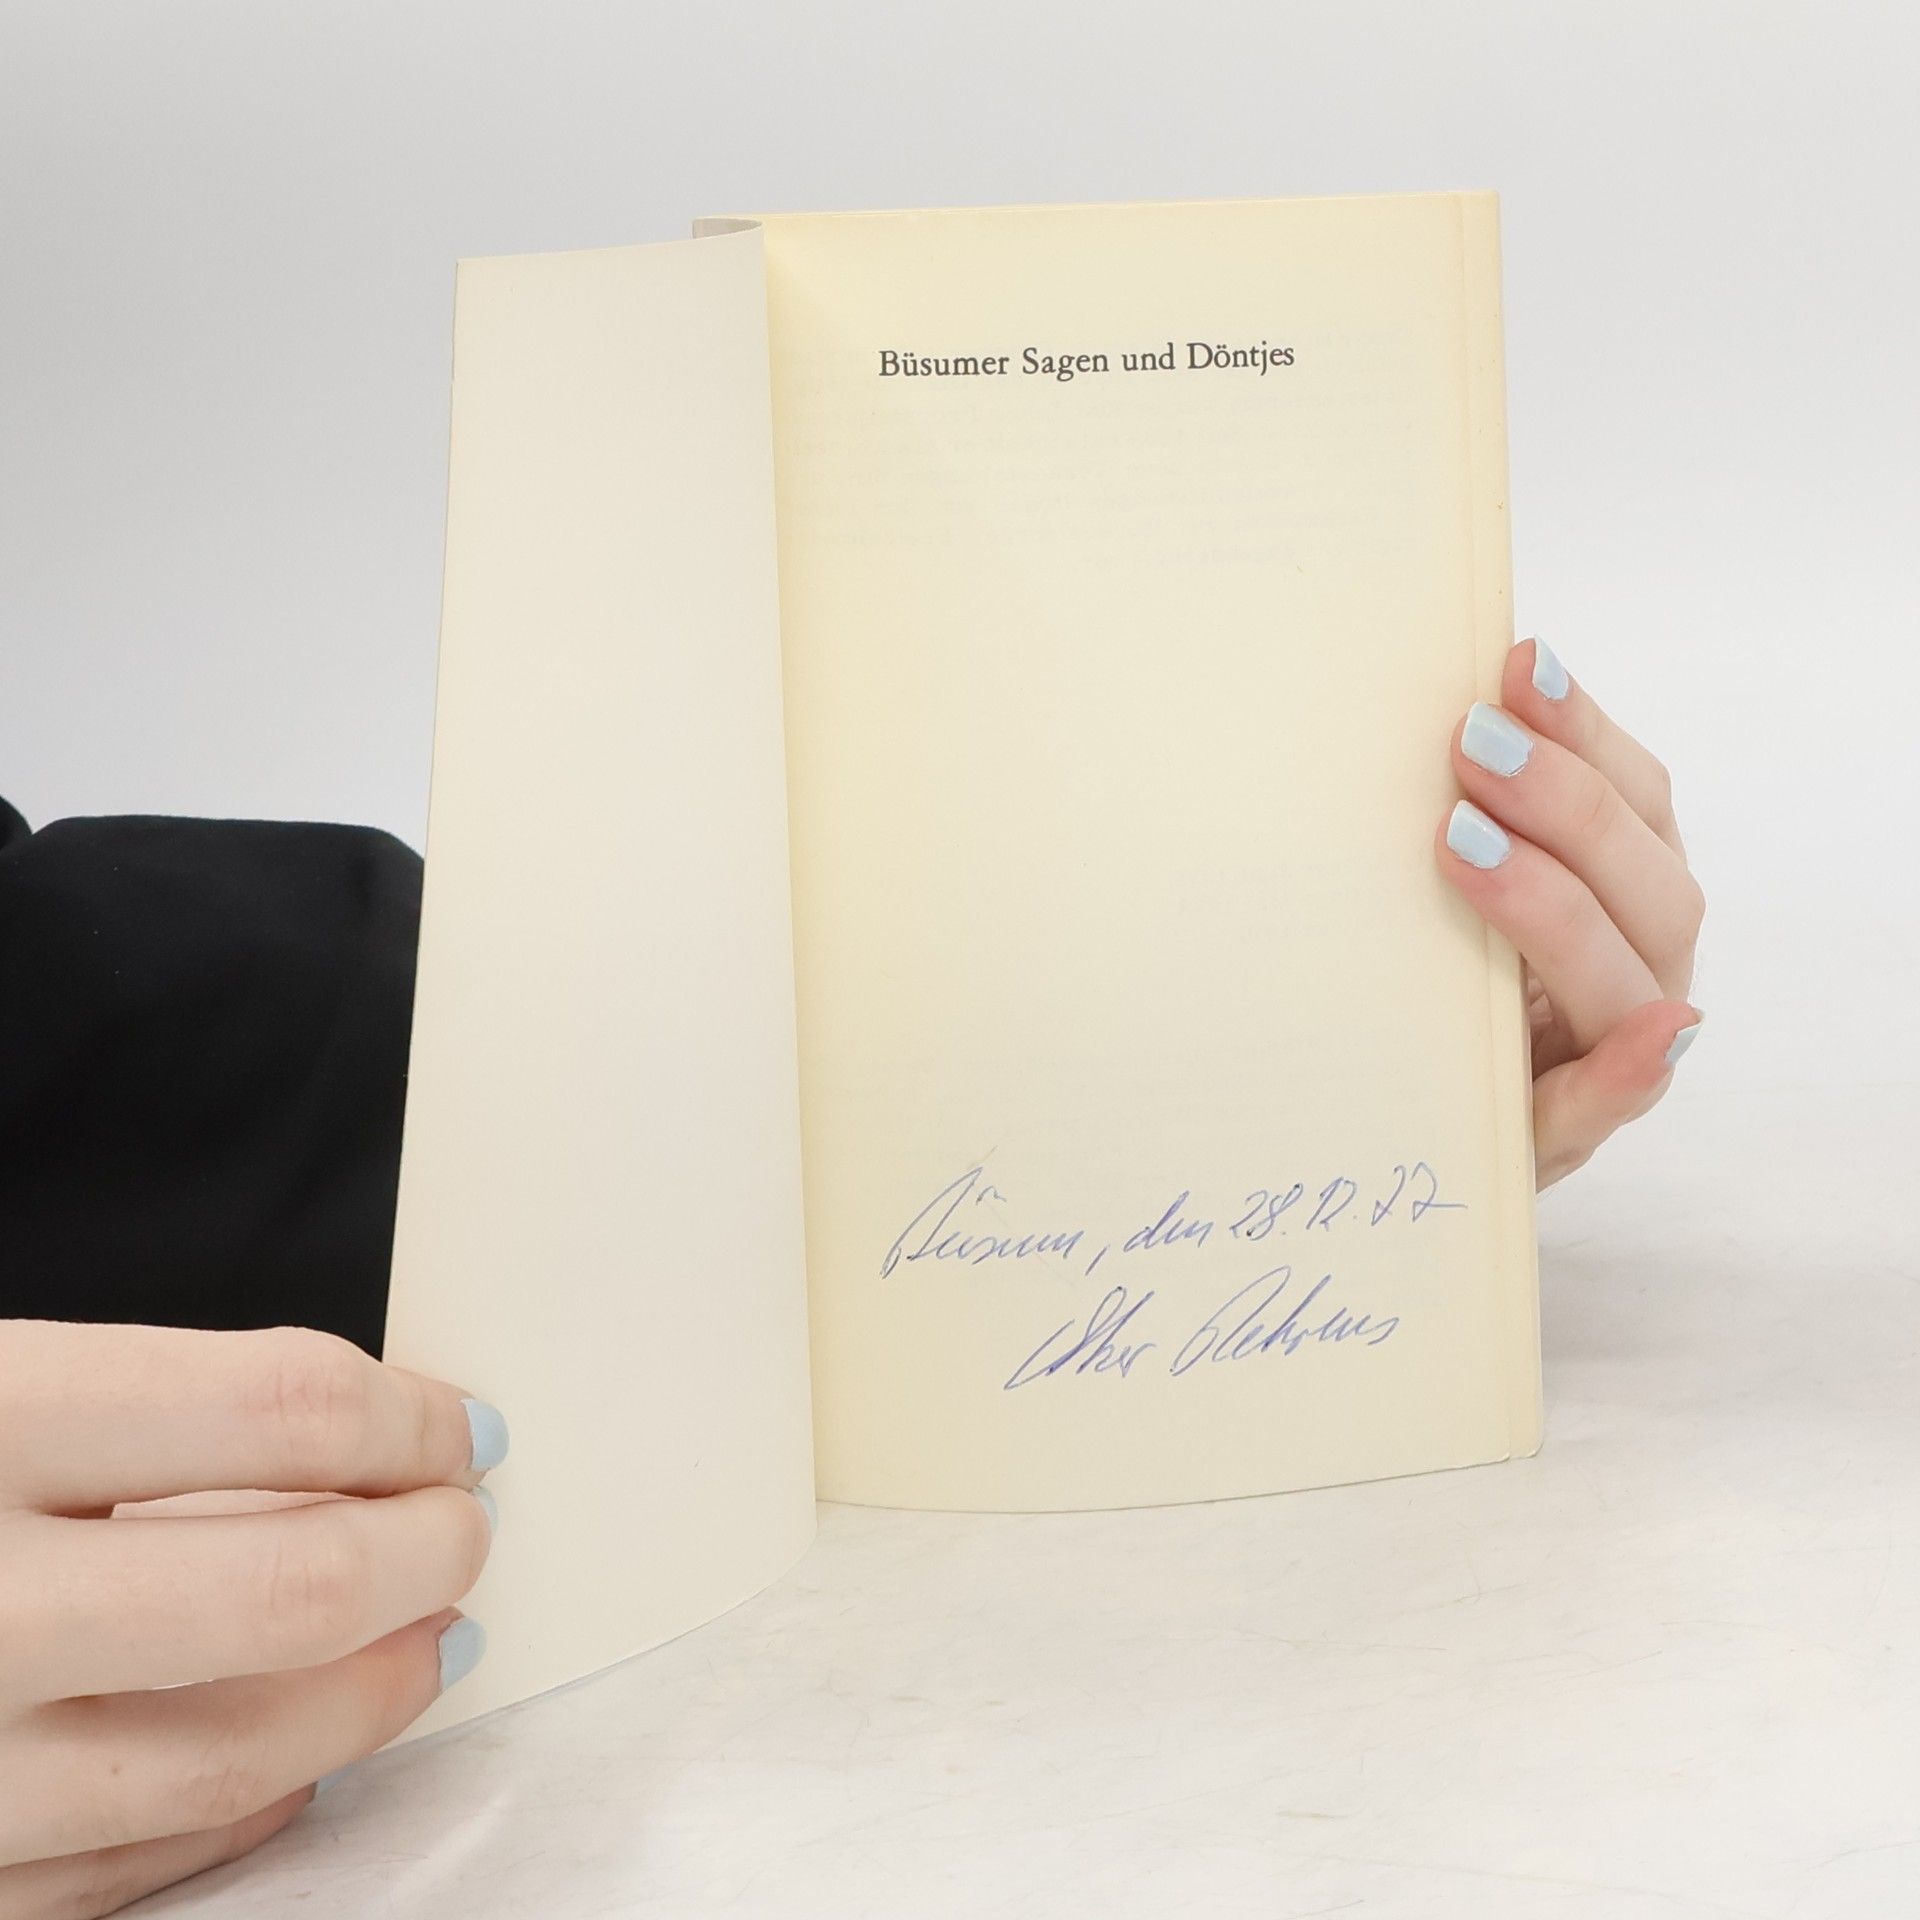 Büsumer Sagen und Döntjes
Büsum, den 28.12.77